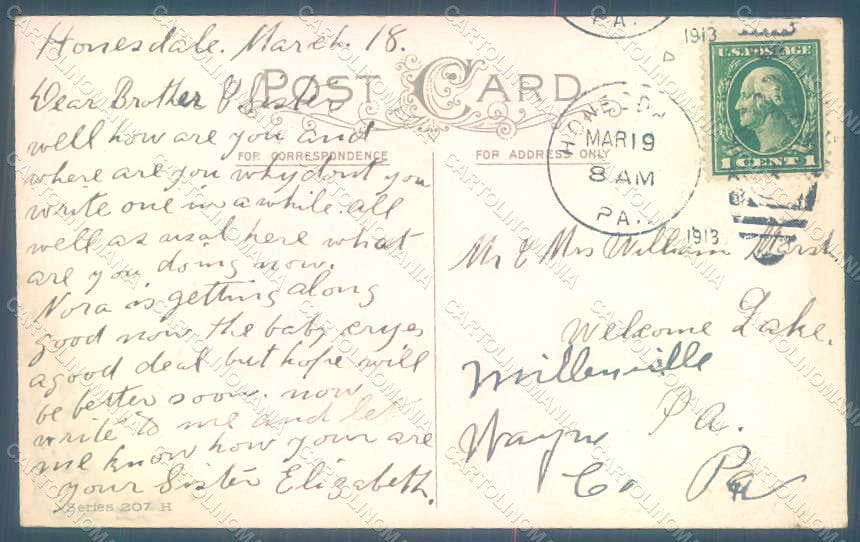 Honesdale. March. 18.
POST CARD
Dear Brother & Sister
well how are you and
FOR CORRESPONDENCE
where are you why dont you
write one in a while. all
well as usal here what
are you doing now.
Nora is getting along
good now the baby cryes
a good deal but hope will
be better soon. now
write to me and let
me know how your are
your Sister Elizabeth.
Series 207 H
FOR ADDRESS ONLY
PA.
1913
MAR 19
8 AM
PA.
1913
U.S. POSTAGE
1 CENT 1
Mr & Mrs William Marsh.
Welcome Lake.
Millenville
PA.
Wayne
Co Pa
CARTOLINOMANIA